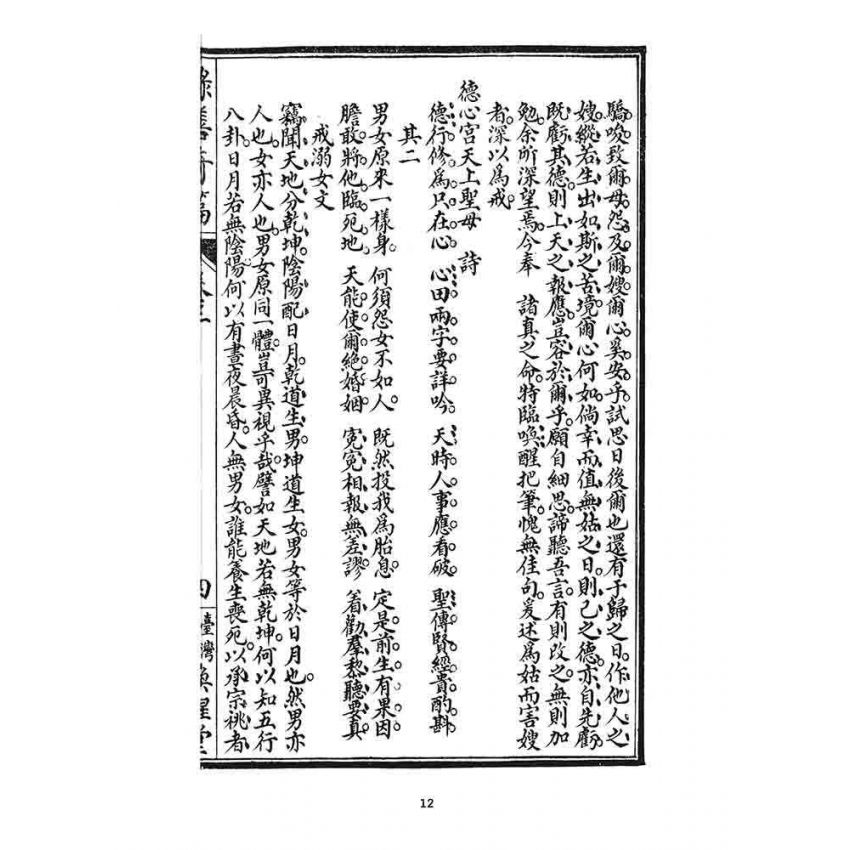 驕唆致爾母怨及爾嫂爾心奚安乎試思日後爾也還有于歸之日作他人之
嫂縱若生出如斯之苦境爾心何如倘幸而值無姑之日則己之德亦自先虧
既虧其德則上天之報應豈容於爾乎願自細思諦聽吾言有則改之無則加
勉余所深望焉今奉　諸真之命特臨喚醒把筆愧無佳句爰述為姑而害嫂
者深以為戒
德心宮天上聖母　詩
德行修為只在心　心田兩字要詳吟　天時人事應看破　聖傳賢經貴酌斟
其二
男女原來一樣身　何須怨女不如人　既然投我為胎息　定是前生有果因
膽敢將他臨死地　天能使爾絕婚姻　冤冤相報無差謬　着勸羣黎聽要真
戒溺女文
竊聞天地分乾坤陰陽配日月乾道生男坤道生女男女等於日月也然男亦
人也女亦人也男女原同一體豈可異視乎哉譬如天地若無乾坤何以知五行
八卦日月若無陰陽何以有晝夜晨昏人無男女誰能養生喪死以承宗祧者
善奇篇
四
臺灣喚醒堂
12